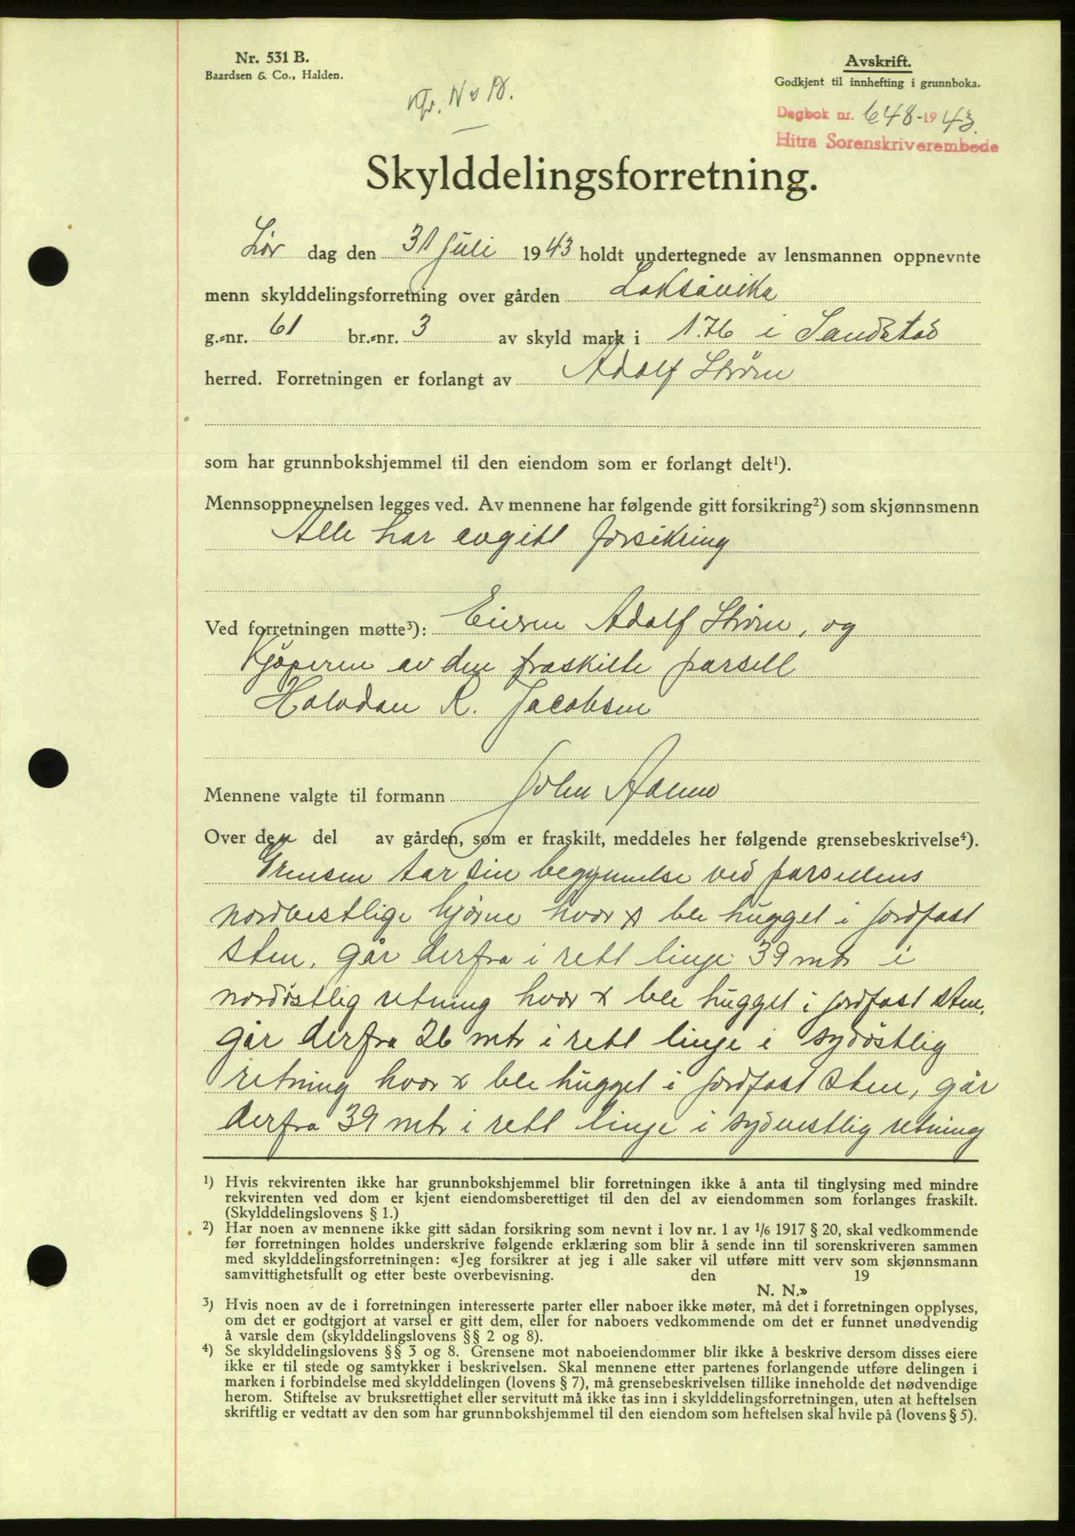 Nr. 531 B.
Baardsen & Co., Halden.
Avskrift.
Godkjent til innhefting i grunnboka.
Dagbok nr. 648-1943.
Hitra Sorenskriverembede
Skylddelingsforretning.
Lør dag den 31 juli 1943 holdt undertegnede av lensmannen oppnevnte
menn skylddelingsforretning over gården Laksåvika
g.-nr. 61 br.-nr. 3 av skyld mark i 1.76 i Sandstad
herred. Forretningen er forlangt av Adolf Strøm
som har grunnbokshjemmel til den eiendom som er forlangt delt¹).
Mennsoppnevnelsen legges ved. Av mennene har følgende gitt forsikring²) som skjønnsmenn
Alle har avgitt forsikring
Ved forretningen møtte³): Eieren Adolf Strøm, og
Kjøperen av den fraskilte parsell
Halvdan R. Jacobsen
Mennene valgte til formann John
Over den del av gården, som er fraskilt, meddeles her følgende grensebeskrivelse⁴).
Grensen tar sin begynnelse ved parsellens
nordvestlige hjørne hvor x ble hugget i jordfast
sten, går derfra i rett linje 39 mtr i
nordøstlig retning hvor x ble hugget i jordfast sten,
går derfra 26 mtr i rett linje i sydøstlig
retning hvor x ble hugget i jordfast sten, går
derfra 39 mtr i rett linje i sydvestlig retning
¹) Hvis rekvirenten ikke har grunnbokshjemmel blir forretningen ikke å anta til tinglysing med mindre
rekvirenten ved dom er kjent eiendomsberettiget til den del av eiendommen som forlanges fraskilt.
(Skylddelingslovens § 1.)
²) Har noen av mennene ikke gitt sådan forsikring som nevnt i lov nr. 1 av 1/6 1917 § 20, skal vedkommende
før forretningen holdes underskrive følgende erklæring som blir å sende inn til sorenskriveren sammen
med skylddelingsforretningen: «Jeg forsikrer at jeg i alle saker vil utføre mitt verv som skjønnsmann
samvittighetsfullt og etter beste overbevisning. den 19
N. N.»
³) Hvis noen av de i forretningen interesserte parter eller naboer ikke møter, må det i forretningen opplyses,
om det er godtgjort at varsel er gitt dem, eller for naboers vedkommende om det er funnet unødvendig
å varsle dem (skylddelingslovens §§ 2 og 8).
⁴) Se skylddelingslovens §§ 3 og 8. Grensene mot naboeiendommer blir ikke å beskrive dersom disses eiere
ikke er til stede og samtykker i beskrivelsen. Skal mennene etter partenes forlangende utføre delingen i
marken i forbindelse med skylddelingen (lovens § 7), må grensebeskrivelsen tillike inneholde det nødvendige
herom. Stiftelse av bruksrettighet eller servitutt må ikke tas inn i skylddelingsforretningen, uten at heftelsen
skriftlig er vedtatt av den som har grunnbokshjemmel til den eiendom som heftelsen skal hvile på (lovens § 5).